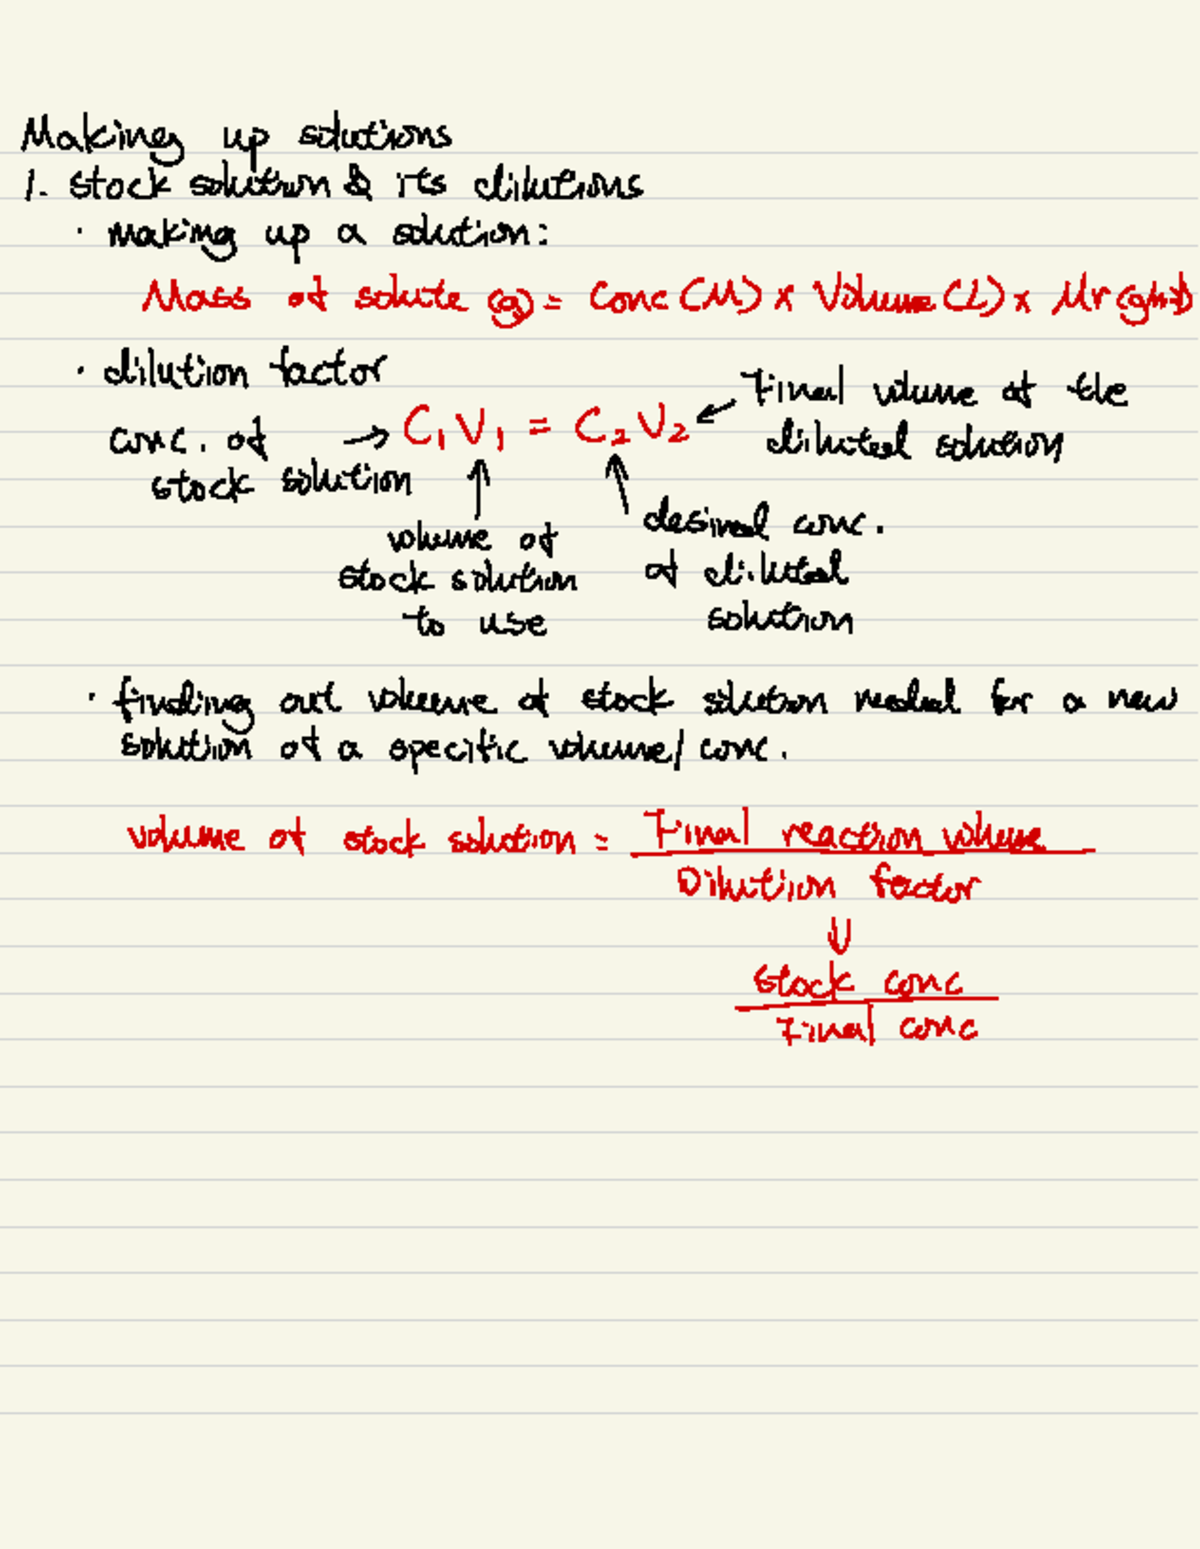 Making up solutions
1. stock solution & its dilutions
· making up a solution:
Mass of solute (g) = Conc (M) x Volume (L) x Mr
· dilution factor
conc. of stock solution → C₁V₁ = C₂V₂ ← Final volume of the diluted solution
↑ volume of stock solution to use
↑ desired conc. of diluted solution
· finding out volume of stock solution needed for a new
solution of a specific volume/conc.
volume of stock solution = Final reaction volume
Dilution factor
↓
Stock conc
Final conc